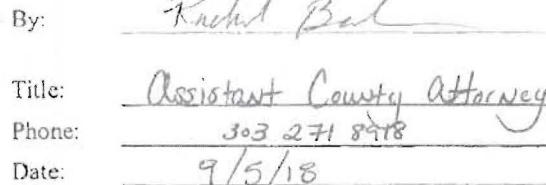 By: Rachel
Title: Assistant County Attorney
Phone: 303 271 8918
Date: 9/5/18